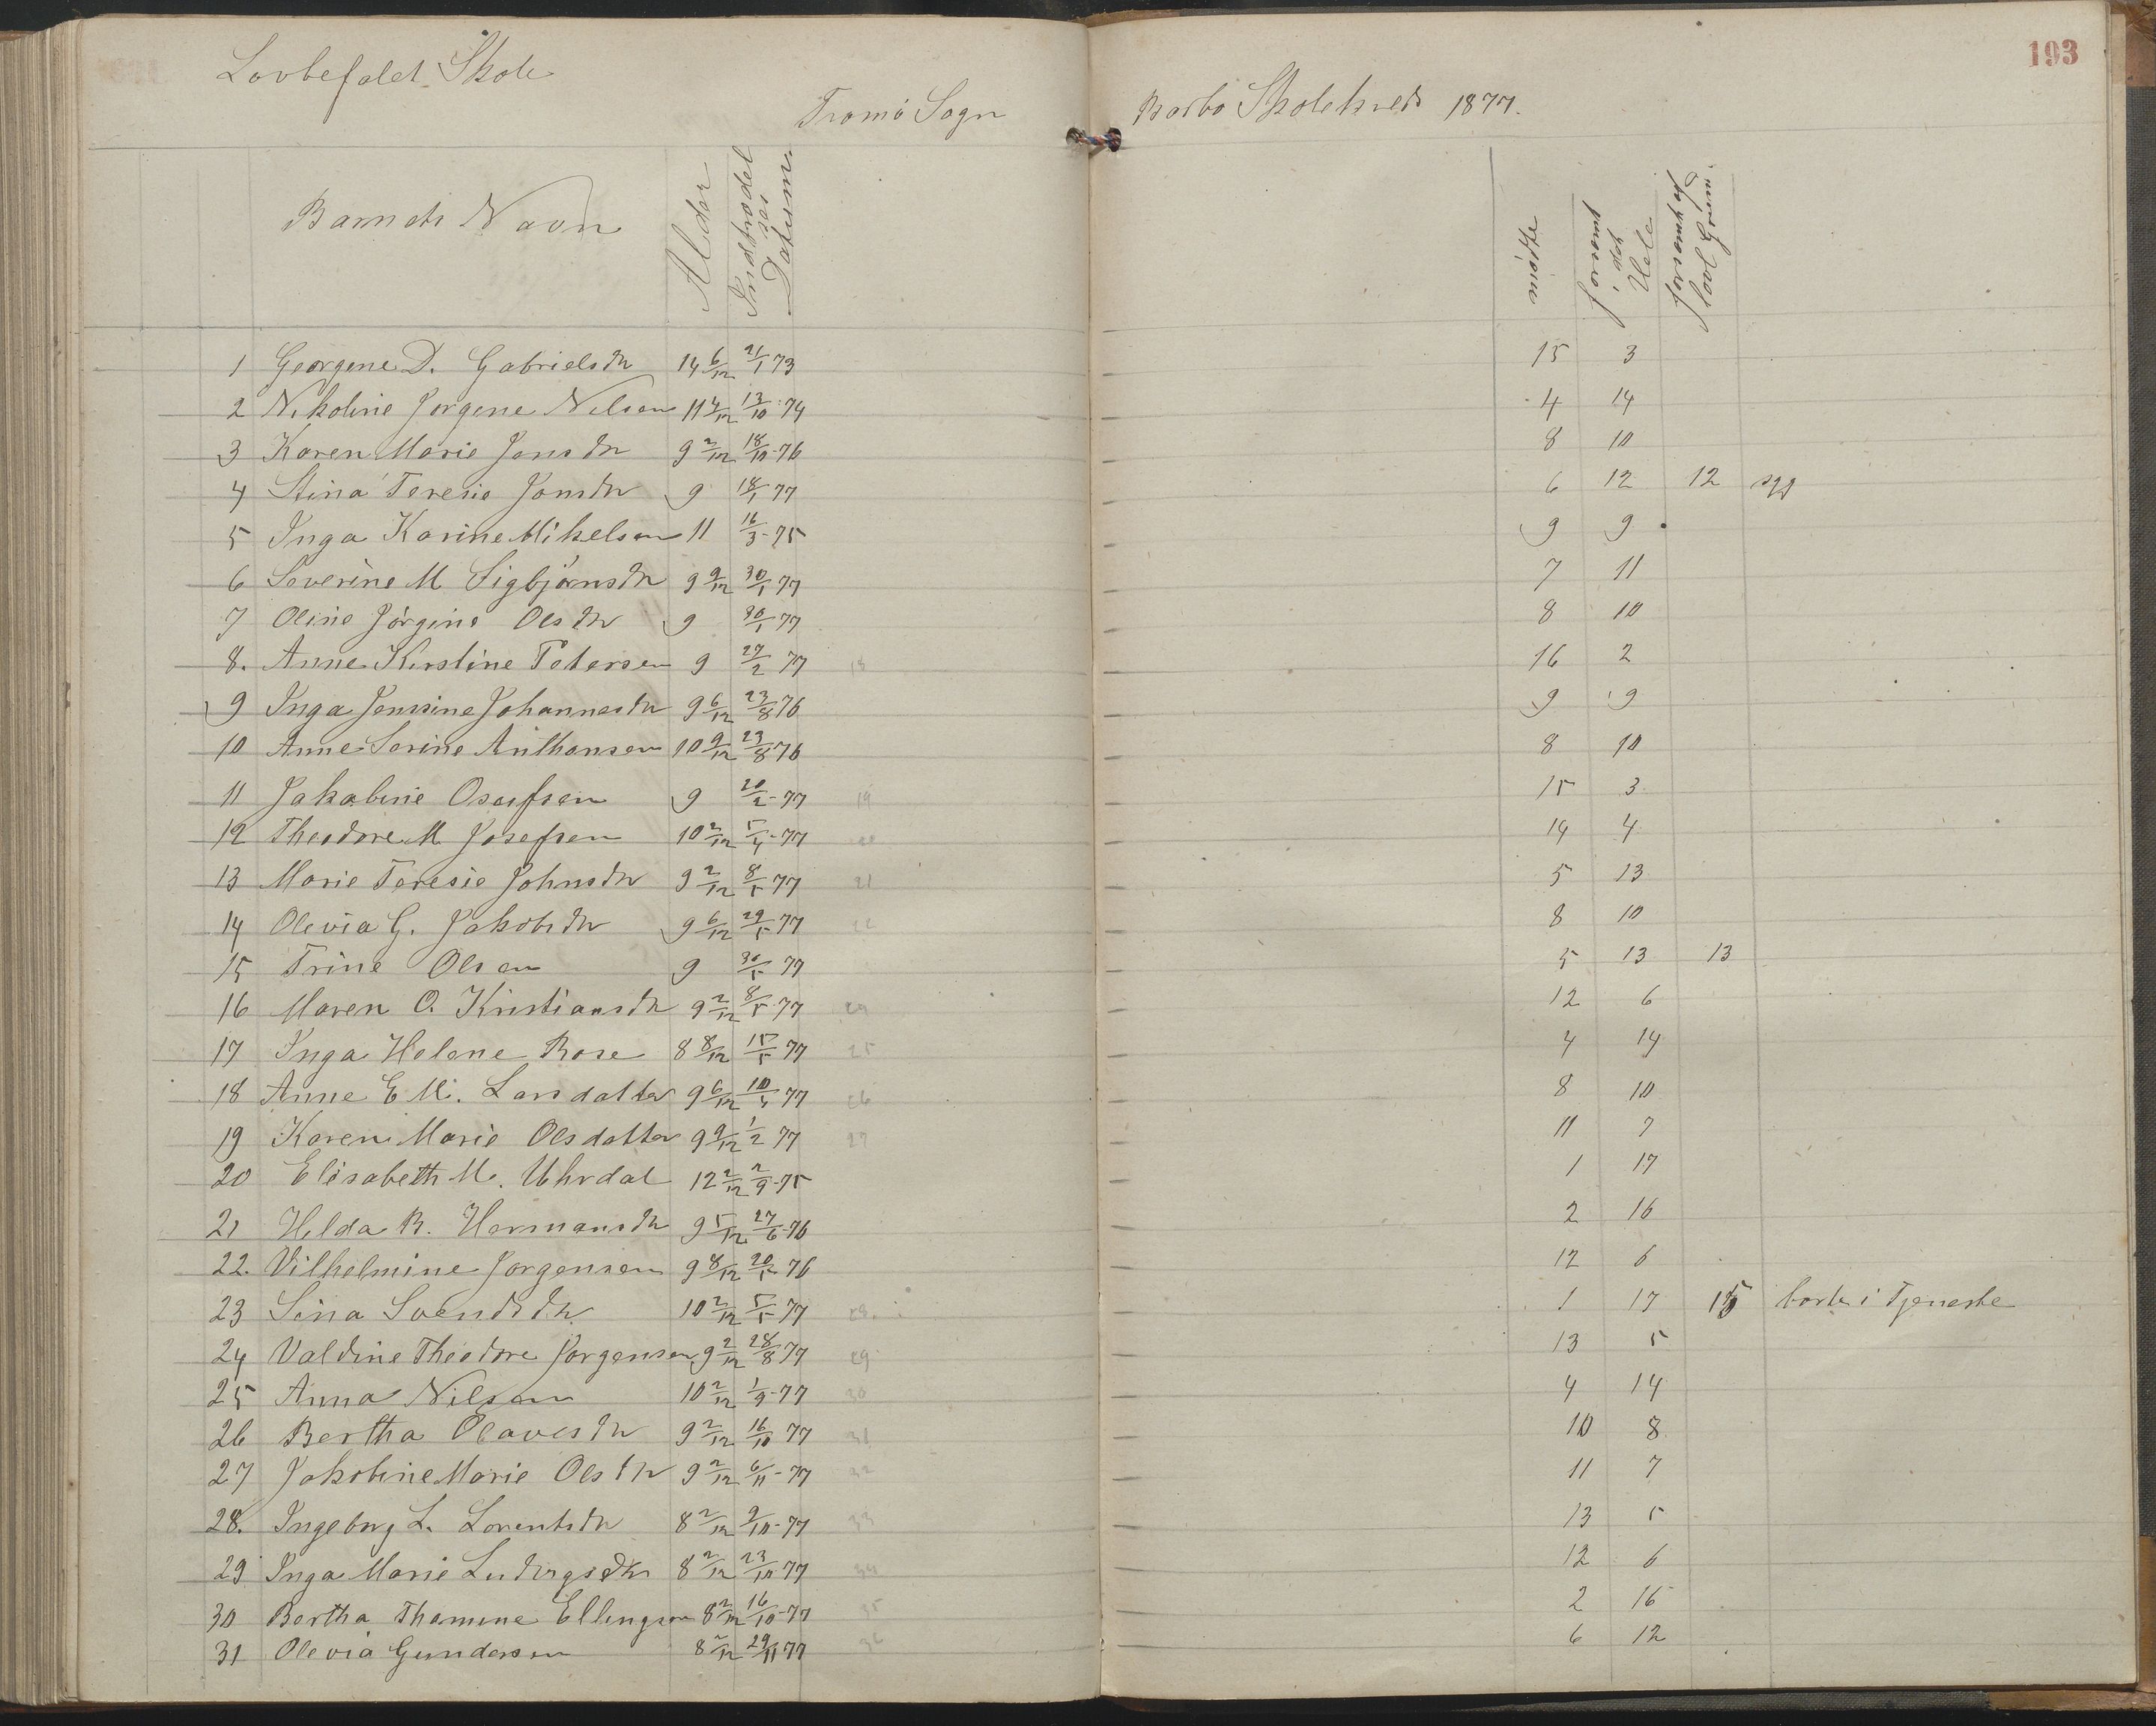 Lovbefalet Skole
193
Tromö Sogn Barbo Skolekreds 1877.
Barnets Navn Alder Indtrædelses Datum mødte forsømt i det Hele forsømt af lovl Grund
1 Georgene D. Gabrielsdtr 14 6/12 21/1 73 15 3
2 Nikoline Jorgine Nilsen 11 4/12 13/10 -74 4 14
3 Karen Marie Jensdtr 9 2/12 18/10 -76 8 10
4 Stina Teresie Jonsdtr 9 18/1 77 6 12 12 syg
5 Inga Karine Mikelsen 11 16/3 -75 9 9
6 Severine M Sigbjörnsdtr 9 9/12 30/1 77 7 11
7 Oline Jörgine Olsdtr 9 30/1 77 8 10
8. Anne Kirstine Petersen 9 27/2 77 16 2
9 Inga Jensine Johannesdtr 9 6/12 23/8 76 9 9
10 Anne Serine Anthonsen 10 9/12 23/8 76 8 10
11 Jakobine Osufsen 9 20/2 -77 19 15 3
12 Theodore M Josefsen 10 2/12 5/4 -77 14 4
13 Marie Teresie Johnsdtr 9 2/12 8/5 77 21 5 13
14 Olevia G. Jakobsdtr 9 6/12 29/5 77 22 8 10
15 Trine Olsen 9 30/5 77 5 13 13
16 Maren O. Kristiansdtr 9 2/12 8/5 -77 24 12 6
17 Inga Helene Rose 8 8/12 15/5 77 25 4 14
18 Anne E M. Larsdatter 9 6/12 10/4 77 26 8 10
19 Karen Marie Olsdatter 9 9/12 1/2 77 27 11 7
20 Elisabeth M. Uhrdal 12 2/12 2/9 -75 1 17
21 Hilda B. Hermansdtr 9 5/12 27/6 -76 2 16
22. Vilhelmine Jorgensen 9 8/12 20/5 76 12 6
23 Sina Svendsdtr 10 2/12 5/5 77 28. 1 17 15 borte i Tjeneste
24 Valdine Theodore Jorgensen 9 2/12 28/8 77 29 13 5
25 Anna Nilsen 10 2/12 1/9 -77 30 4 14
26 Bertha Olavesdtr 9 2/12 16/10 77 31 10 8
27 Jakobine Marie Olsdtr 9 2/12 6/11 -77 32 11 7
28. Ingeborg L. Lorentsdtr 8 2/12 9/10 -77 33 13 5
29 Inga Marie Ludvigsdtr 8 2/12 23/10 -77 34 12 6
30 Bertha Thamine Ellingsen 8 2/12 16/10 -77 35 2 16
31 Olevia Gundersen 8 2/12 29/11 77 36 6 12